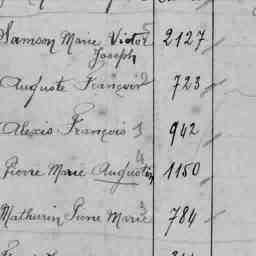 Samson Marie Victor 5 2127
Joseph
Auguste François 2 723
Alexis François 1 942
4
Pierre Marie Augustin 1150
Mathurin Pierre Marie 3 784